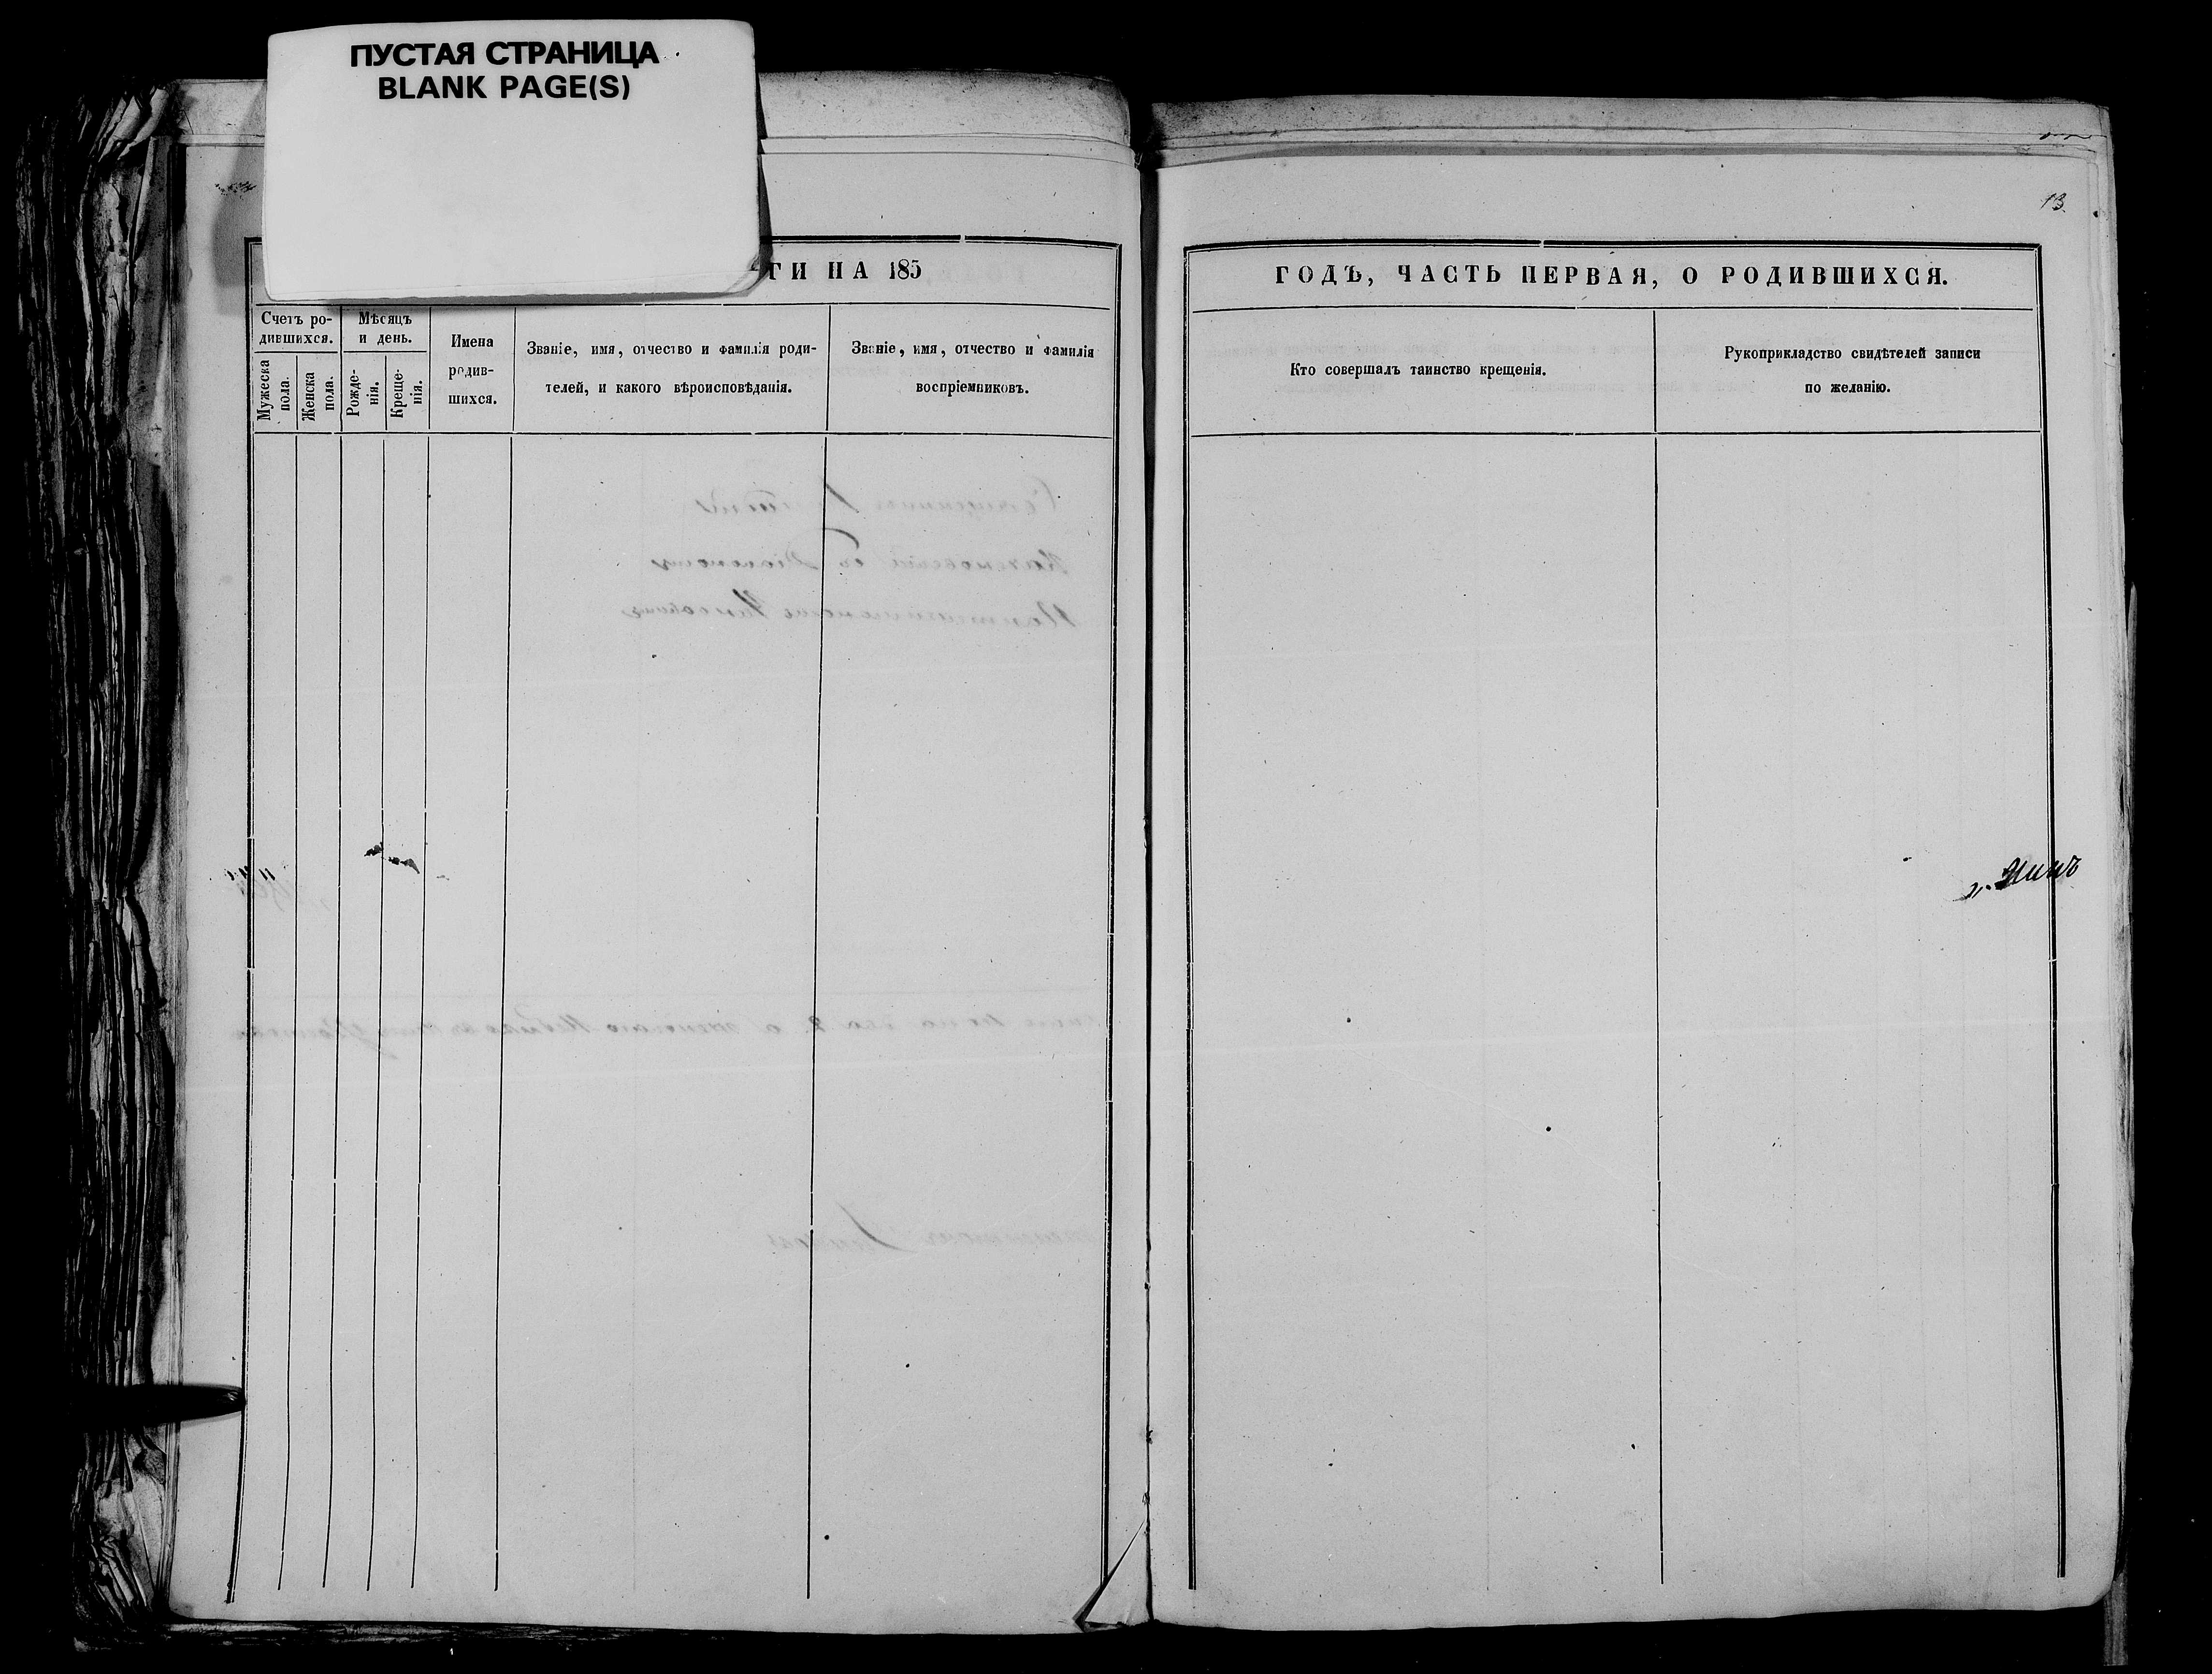 ПУСТАЯ СТРАНИЦА
BLANK PAGE(S)
13
ГИ НА 185
ГОДЪ, ЧАСТЬ ПЕРВАЯ, О РОДИВШИХСЯ.
Счетъ ро-
дившихся.
Мужеска
пола.
Женска
пола.
Мѣсяцъ
и день.
Рожде-
нія.
Креще-
нія.
Имена
родив-
шихся.
Званіе, имя, отчество и фамилія роди-
телей, и какого вѣроисповѣданія.
Званіе, имя, отчество и фамилія
воспріемниковъ.
Кто совершалъ таинство крещенія.
Рукоприкладство свидѣтелей записи
по желанію.